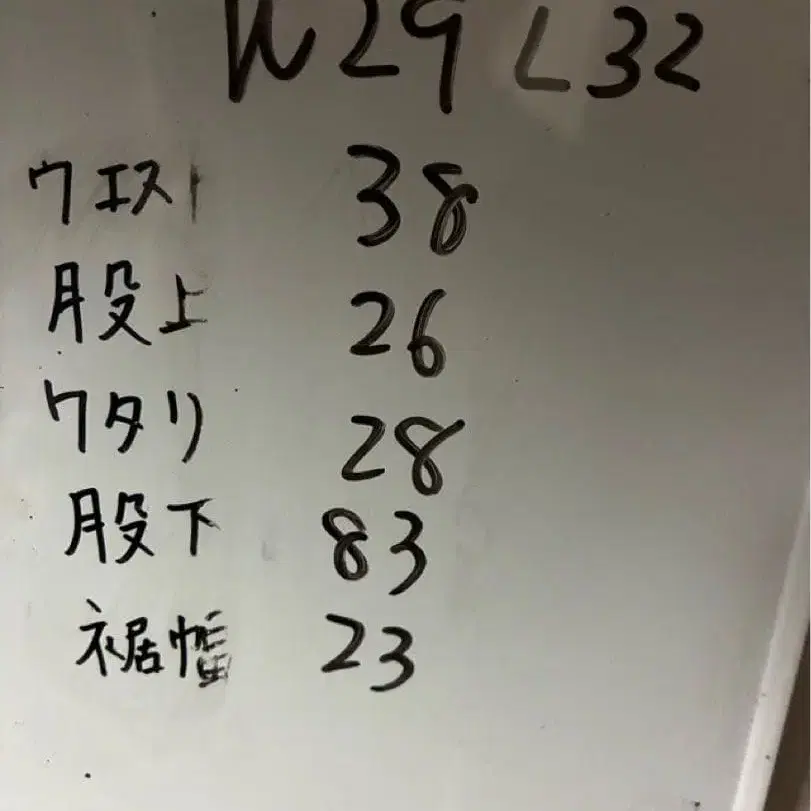 W29 L32
ウエスト 38
股上 26
ワタリ 28
股下 83
裾幅 23